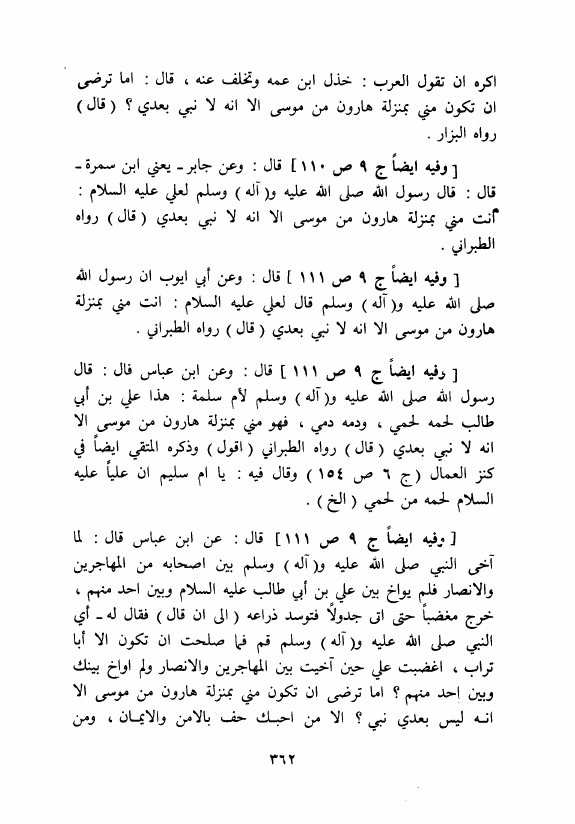 اكره ان تقول العرب : خذل ابن عمه وتخلف عنه ، قال : اما ترضى
ان تكون مني بمنزلة هارون من موسى الا انه لا نبي بعدي ؟ ( قال )
رواه البزار .
[ وفيه ايضاً ج ٩ ص ١١٠ ] قال : وعن جابر ـ يعني ابن سمرة ـ
قال : قال رسول الله صلى الله عليه و( آله ) وسلم لعلي عليه السلام :
أنت مني بمنزلة هارون من موسى الا انه لا نبي بعدي ( قال ) رواه
الطبراني .
[ وفيه ايضاً ج ٩ ص ١١١ ] قال : وعن أبي ايوب ان رسول الله
صلى الله عليه و( آله ) وسلم قال لعلي عليه السلام : انت مني بمنزلة
هارون من موسى الا انه لا نبي بعدي ( قال ) رواه الطبراني .
[ وفيه ايضاً ج ٩ ص ١١١ ] قال : وعن ابن عباس قال : قال
رسول الله صلى الله عليه و( آله ) وسلم لأم سلمة : هذا علي بن أبي
طالب لحمه لحمي ، ودمه دمي ، فهو مني بمنزلة هارون من موسى الا
انه لا نبي بعدي ( قال ) رواه الطبراني ( اقول ) وذكره المتقي ايضاً في
كنز العمال ( ج ٦ ص ١٥٤ ) وقال فيه : يا ام سليم ان علياً عليه
السلام لحمه من لحمي ( الخ ) .
[ وفيه ايضاً ج ٩ ص ١١١ ] قال : عن ابن عباس قال : لما
آخى النبي صلى الله عليه و( آله ) وسلم بين اصحابه من المهاجرين
والانصار فلم يواخ بين علي بن أبي طالب عليه السلام وبين احد منهم ،
خرج مغضباً حتى اتى جدولًا فتوسد ذراعه ( الى ان قال ) فقال له ـ أي
النبي صلى الله عليه و( آله ) وسلم قم فما صلحت ان تكون الا أبا
تراب ، اغضبت علي حين آخيت بين المهاجرين والانصار ولم اواخ بينك
وبين احد منهم ؟ اما ترضى ان تكون مني بمنزلة هارون من موسى الا
انه ليس بعدي نبي ؟ الا من احبك حف بالامن والايمان ، ومن
٣٦٢